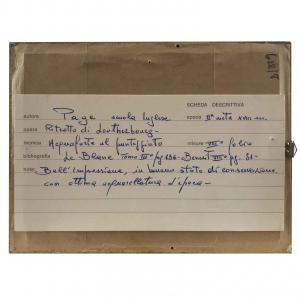 SCHEDA DESCRITTIVA
autore Page scuola Inglese epoca IIª metà XVIII sec.
opera Ritratto di Loutherbourg-
tecnica Acquaforte al punteggiato misure folio
bibliografia Le Blanc Tomo IIIº pg. 136 -
note Bell'impressione, in buono stato di conservazione
con ottima acquarellatura d'epoca -